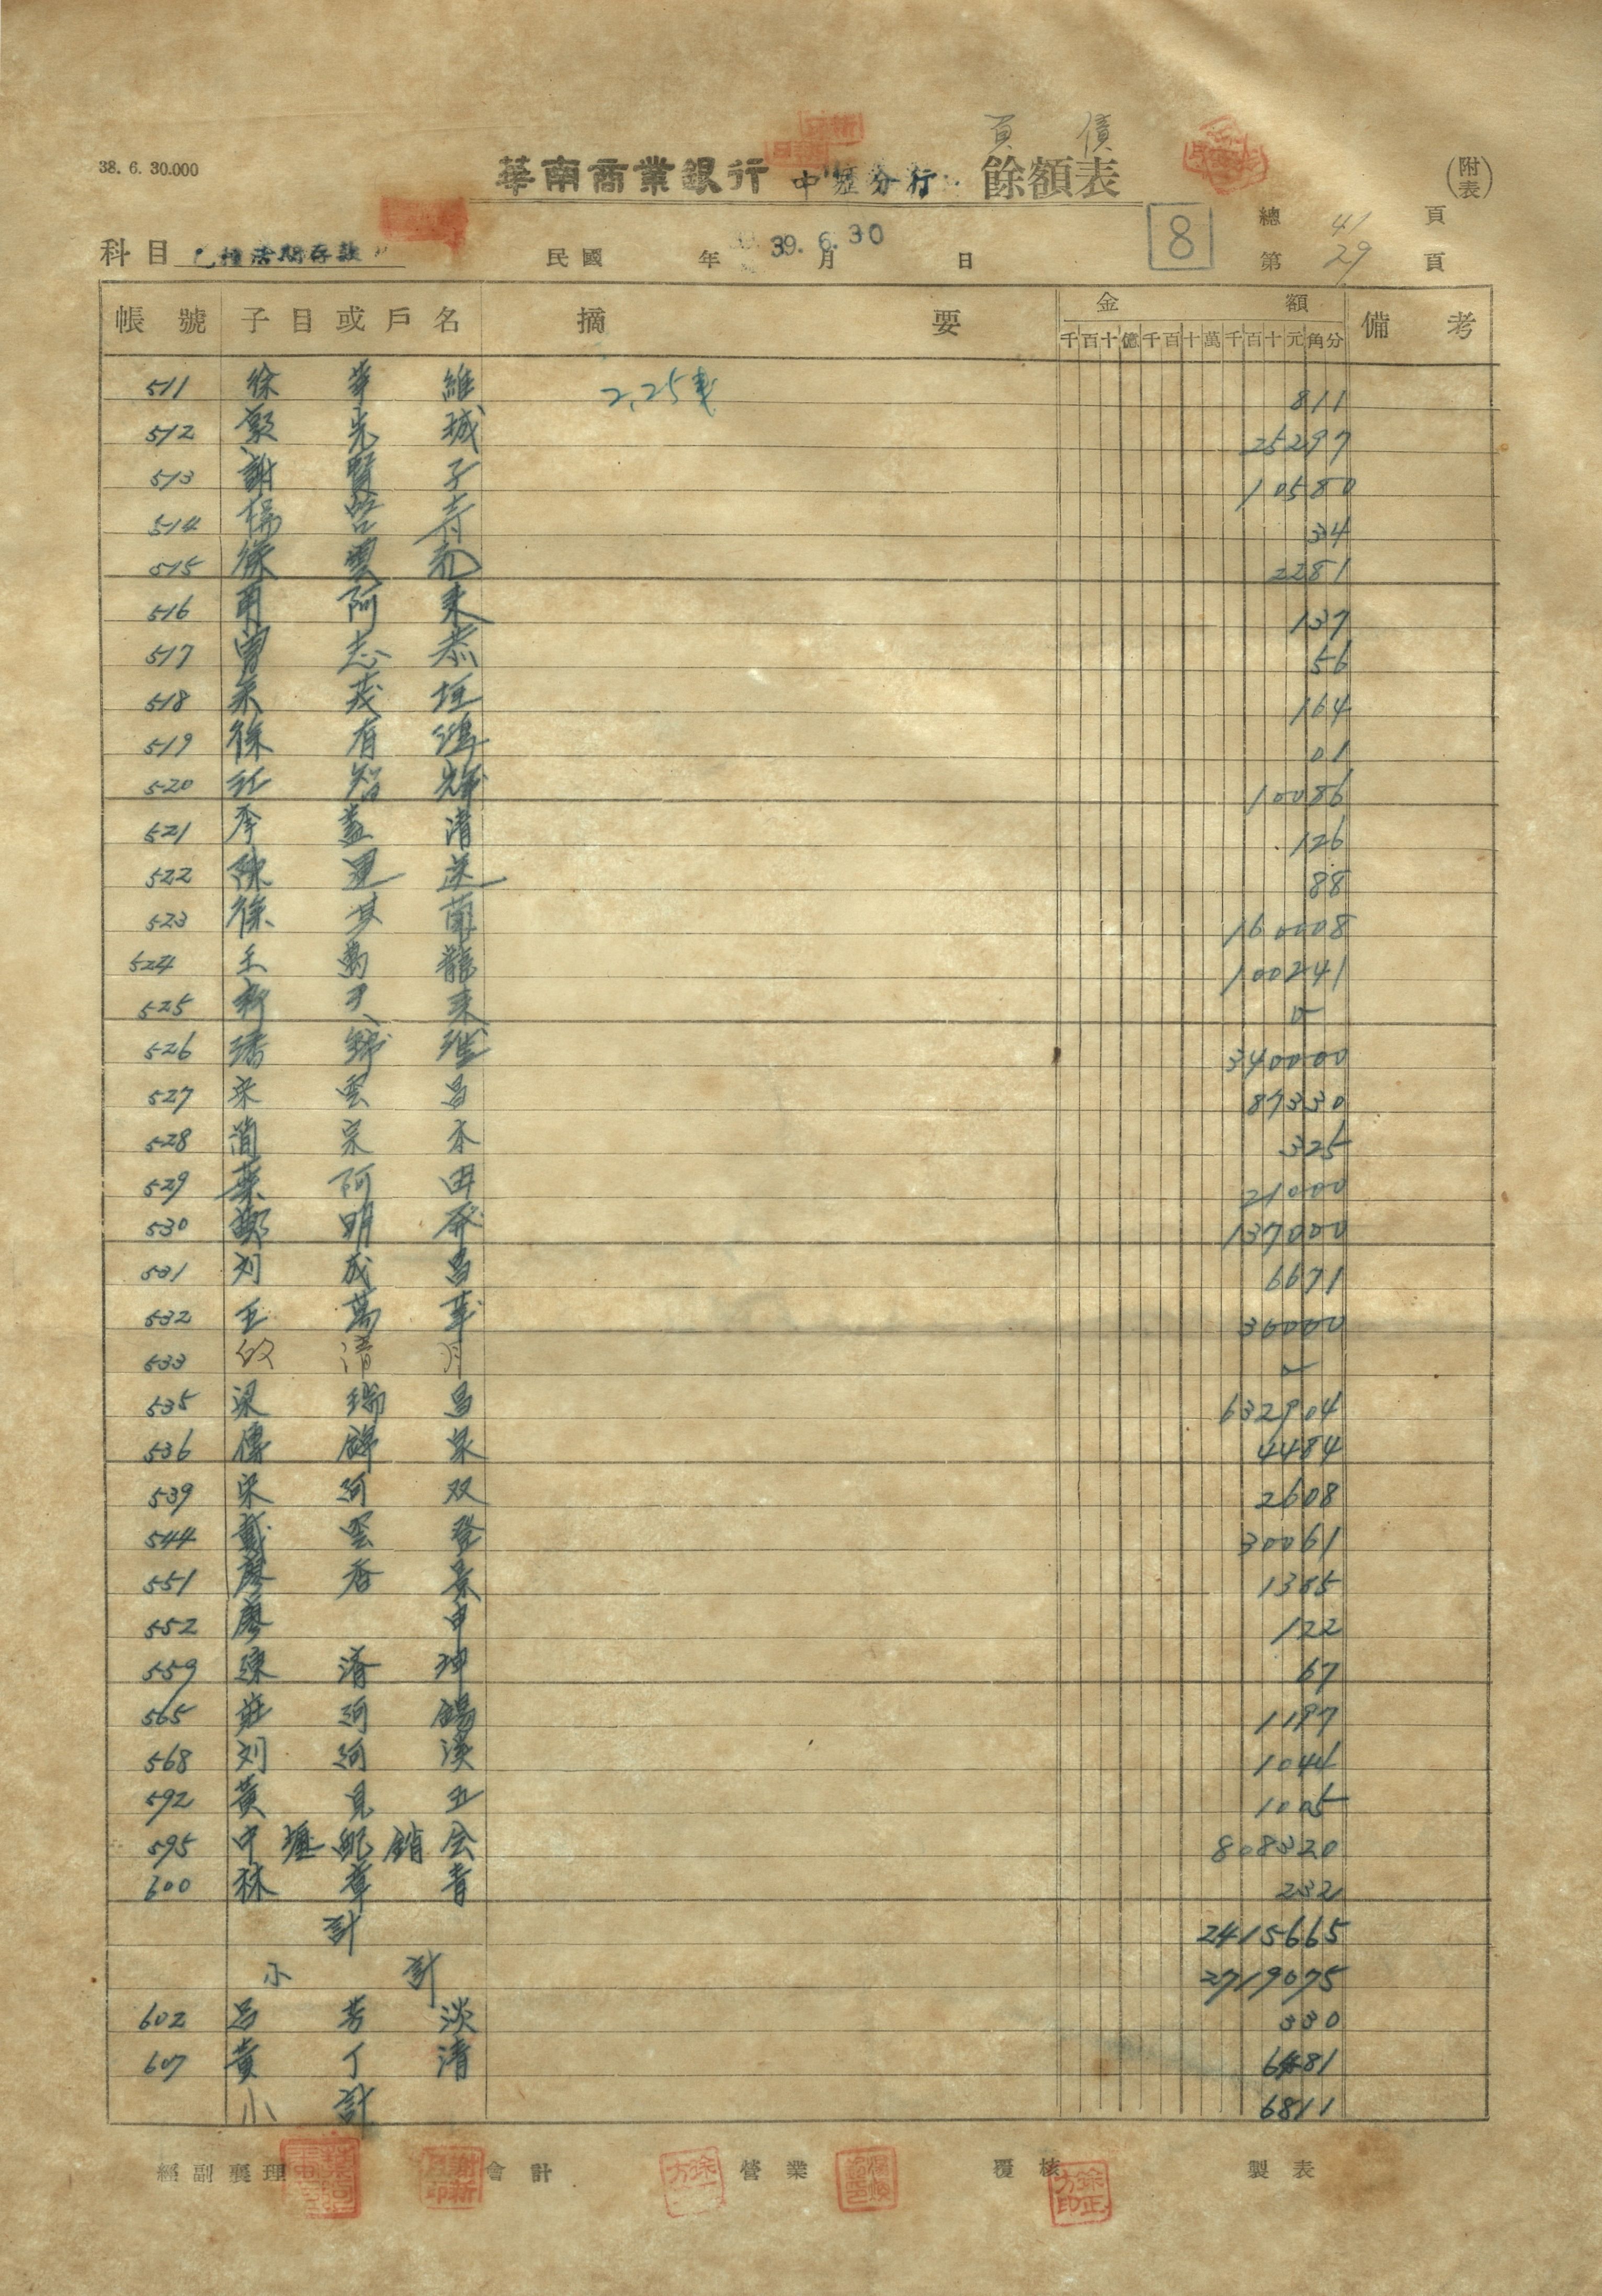 負債
38. 6. 30.000
華南商業銀行 中壢分行 餘額表
(附表)
總 41 頁
科目 乙種活期存款
民國 年 月 日
39. 6. 30
8
第 29 頁
帳號 子目或戶名 摘要 金額 備考
千百十億千百十萬千百十元角分
511 徐華維 2,25 811
512 郭光城 25297
513 謝賢子 10580
514 楊啓寿 34
515 徐雲 2281
516 阿来 137
517 曽志恭 56
518 茂垣 164
519 徐有鴻 01
520 江智輝 10086
521 李蓋清 126
522 陳運送 88
523 徐其蘭 160008
524 王勳龍 100241
525 天来 0
526 錦 340000
527 宋雲昌 87330
528 簡宗本 325
529 葉阿田 21000
530 鄭明發 137000
531 刘成昌 6671
532 王萬華 30000
533 清月
535 梁瑞昌 632904
536 傳錦泉 4484
539 宋阿双 2608
544 戴雲登 30061
551 廖香景 1385
552 廖申 122
559 清坤 67
565 莊阿錫 1197
568 刘阿漢 1044
592 黃見五 1005
595 中壢配銷会 808320
600 林章香 232
計 2415665
小計 2719075
602 呂芳淡 330
607 黃丁清 6481
小計 6811
經副襄理 會計 營業 覆核 製表